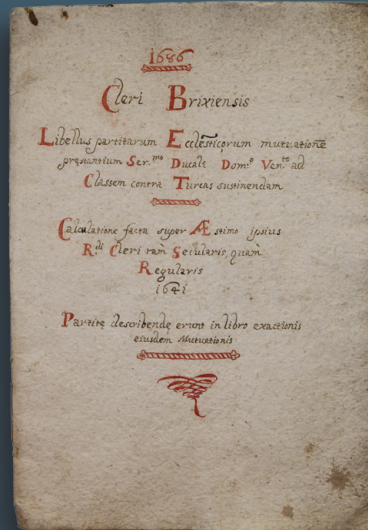 1686
Cleri Brixiensis
Libellus partitarum Eccl̅esticorum mutuatione̅
præstantium Ser.mo Ducali Dom.o Ven.to ad
Classem contra Turcas sustinendam
Calculatione facta super Æstimo ipsius
R.di Cleri tam̀ Secularis, quam̀
Regularis
1641
Partitę describendę erunt in libro exactionis
eiusdem Mutuationis